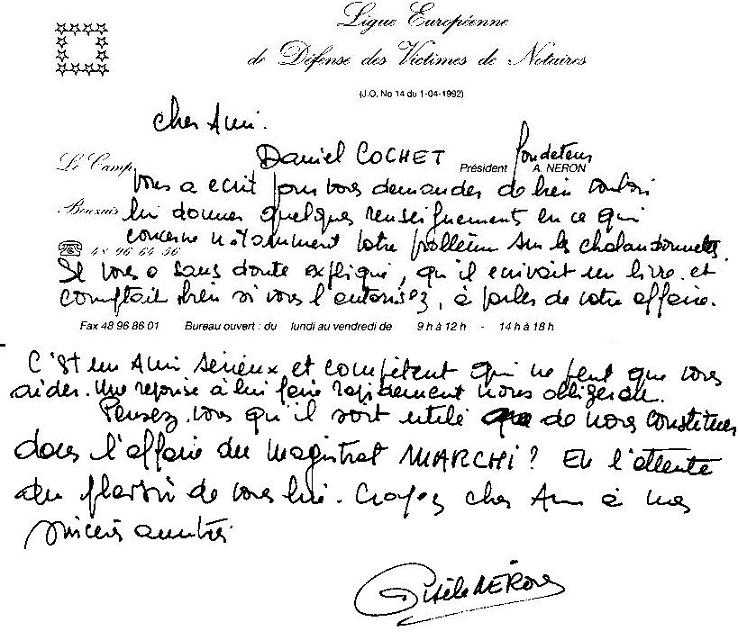 Ligue Européenne
de Défense des Victimes de Notaires
(J.O. No 14 du 1-04-1992)
cher Ami.
Daniel COCHET fondateur
Le Camp Président A. NERON
Vous a ecrit pour vous demander de bien vouloir
lui donner quelques renseignements en ce qui
concerne notamment votre problème sur les chalandonnettes.
☎ 48 96 64 56
Il vous a sans doute expliqué, qu'il ecrivait un livre et
comptait bien si vous l'autorisez, à parler de votre affaire.
Fax 48 96 86 01 Bureau ouvert : du lundi au vendredi de 9 h à 12 h - 14 h à 18 h
C'est un Ami sérieux et compétent qui ne peut que vous
aider. Une reponse à lui faire rapidement nous obligerait.
Pensez vous qu'il soit utile de nous constituer
dans l'affaire du Magistrat MARCHI ? En l'attente
du plaisir de vous lire. Croyez cher Ami à mes
sincères amitiés
Gisèle NERON